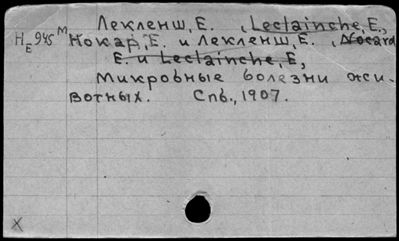 Лекленш, Е. , Leclainche, E.,
НЕ 945 М Нокар, Е. и Лекленш, Е. , Nocard
E. и Leclainche, E,
Микробные болезни жи-
вотных. Спб., 1907.
X